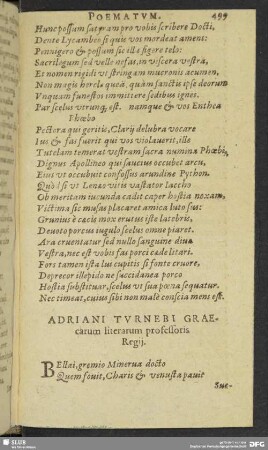 POEMATVM. 499
Hunc possum satyram pro vobis scribere Docti,
Dente Lycambeo si quis vos mordeat ament:
Pennigero & possum sic ille figere telo:
Sacrilegum sed velle nefas, in viscera vestra,
Et nomen rigidi vt stringam mucronis acumen,
Non magis hercle queat, quàm sanctis ipse deorum
Vnquam funestos immittere sedibus ignes.
Par scelus vtrunq; est. namque & vos Enthea
Phœbo
Pectora qui geritis, Clarij delubra vocare
Ius & fas fuerit qui vos violauerit, ille
Tutelam temerat vestram sacra numina Phœbi,
Dignus Apollineo qui saucius occubet arcu,
Eius vt occubuit confossus arundine Python.
Quòd si vt Lenæo vitis vastator Iaccho
Ob meritam iucunda cadit caper hostia noxam,
Victima sic musas placaret amica luto sus:
Grunius è cæcis mox erutus iste latebris,
Deuoto porcus iugulo scelus omne piaret.
Ara cruentatur sed nullo sanguine diua
Vestra, nec est vobis fas porci cæde litari.
Fors tamen ista lui cupitis si fonte cruore,
Deprecor illepido ne succidanea porco
Hostia substituar, scelus vt sua pœna sequatur.
Nec timeat, cuius sibi non malè conscia mens est.
ADRIANI TVRNEBI GRAE-
carum literarum professoris
Regij.
BEllai, gremio Minerua docto
Quem fouit, Charis & venusta pauit
Sue-
SLUB
DFG